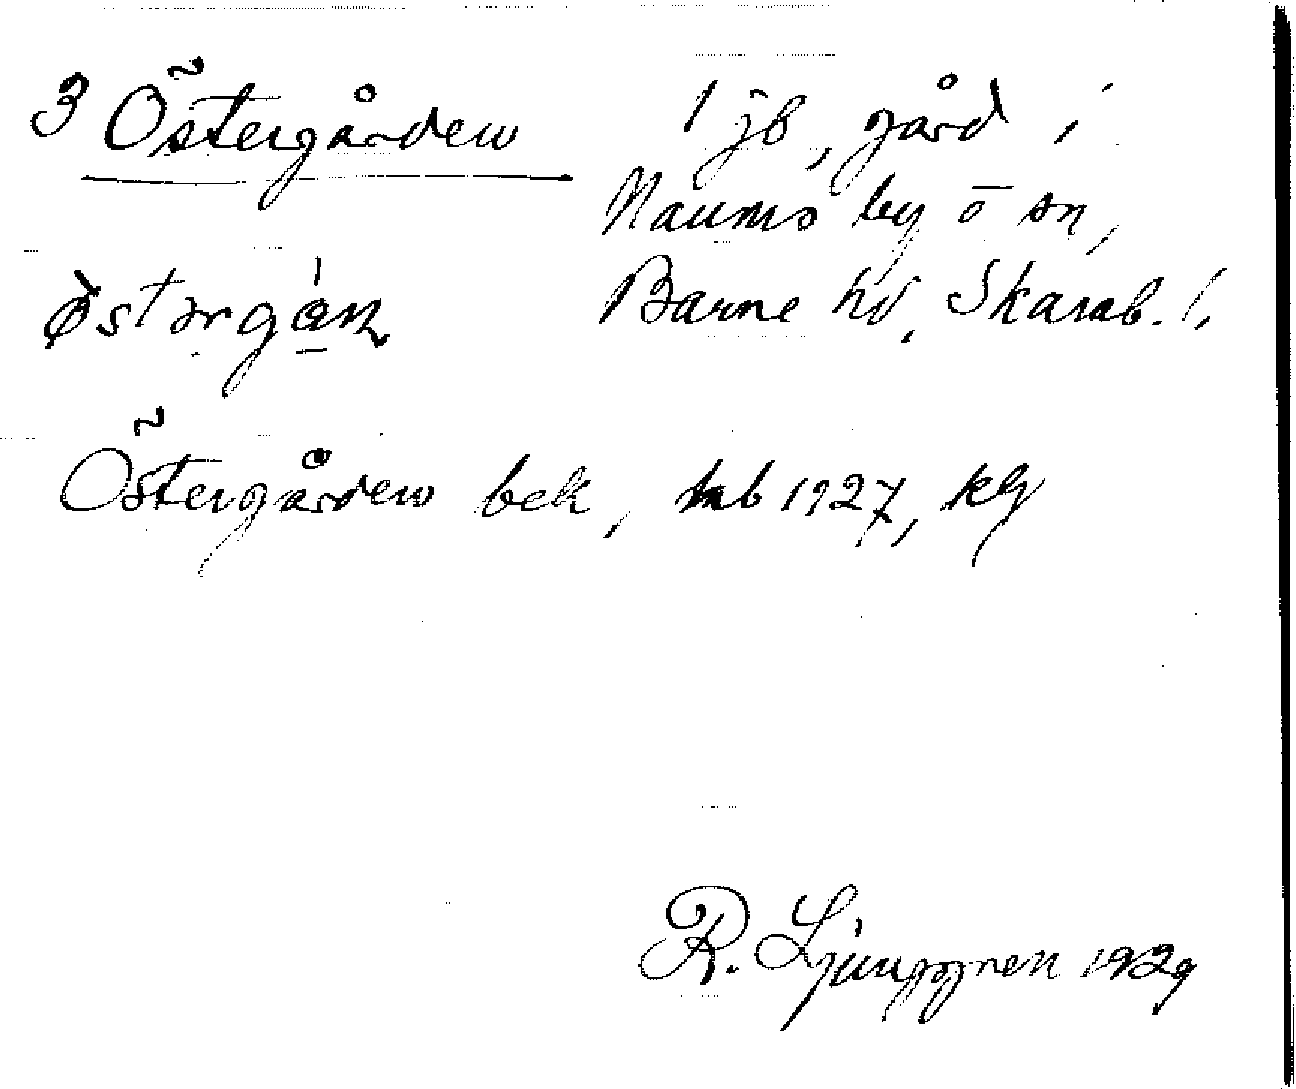 3 Östergården 1 jb, gård i
Naums by o sn,
Barne hd, Skarab. l.
Östergården bek, 1927,
R. Ljunggren 1929